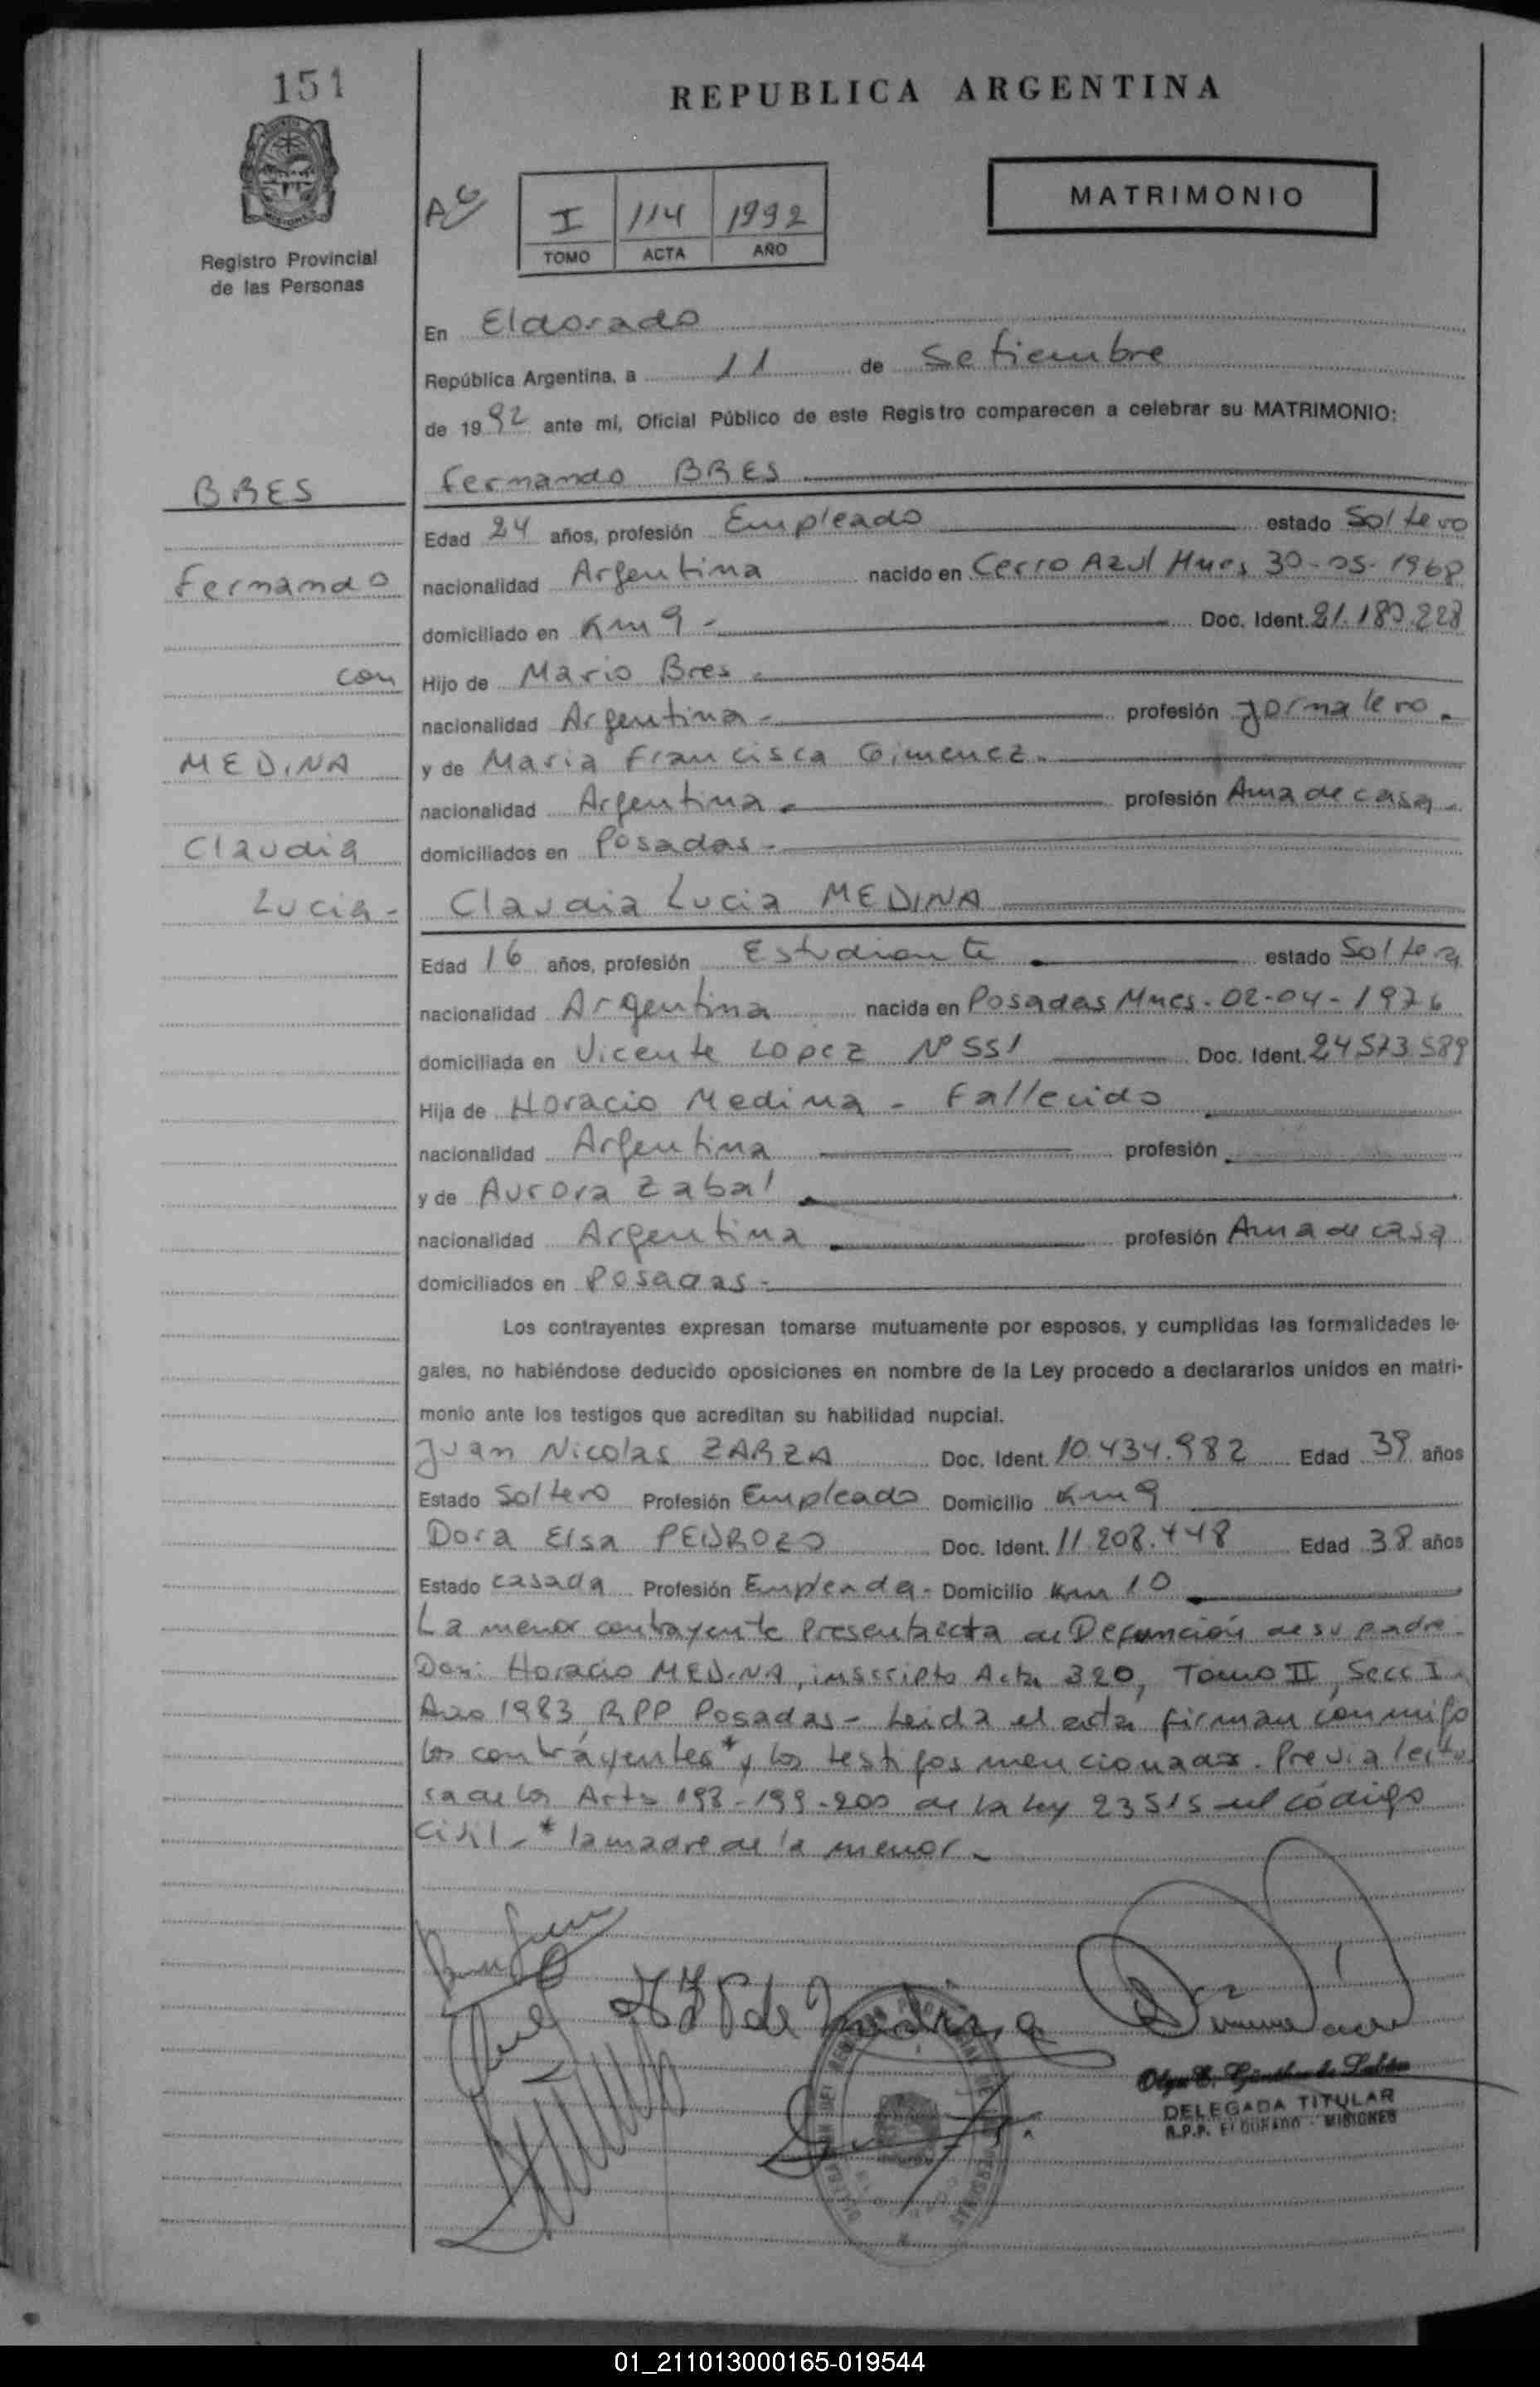 151
REPUBLICA ARGENTINA
MATRIMONIO
I 114 1992
TOMO ACTA AÑO
Registro Provincial
de las Personas
En Eldorado
República Argentina, a 11 de Setiembre
de 1992 ante mi, Oficial Público de este Registro comparecen a celebrar su MATRIMONIO:
BRES
Fernando BRES
Edad 24 años, profesión Empleado estado Soltero
Fernando
nacionalidad Argentina nacido en Cerro Azul Mnes 30-05-1968
domiciliado en Km 9 - Doc. Ident. 21.180.228
con
Hijo de Mario Bres
nacionalidad Argentina - profesión Jornalero.
MEDINA
y de Maria Francisca Gimenez.
nacionalidad Argentina. profesión Ama de casa.
Claudia
domiciliados en Posadas -
Lucia-
Claudia Lucia MEDINA
Edad 16 años, profesión Estudiante estado Soltera
nacionalidad Argentina nacida en Posadas Mnes. 02-04-1976
domiciliada en Vicente Lopez Nº 551 Doc. Ident. 24.573.589
Hija de Horacio Medina - Fallecido
nacionalidad Argentina profesión
y de Aurora Zabal
nacionalidad Argentina profesión Ama de casa
domiciliados en Posadas -
Los contrayentes expresan tomarse mutuamente por esposos, y cumplidas las formalidades le-
gales, no habiéndose deducido oposiciones en nombre de la Ley procedo a declararlos unidos en matri-
monio ante los testigos que acreditan su habilidad nupcial.
Juan Nicolas ZARZA Doc. Ident. 10.434.982 Edad 39 años
Estado Soltero Profesión Empleado Domicilio Km 9
Dora Elsa PEDROZO Doc. Ident. 11.208.448 Edad 38 años
Estado casada Profesión Empleada - Domicilio Km 10
La menor contrayente Presenta acta de Defunción de su padre
Don: Horacio MEDINA, inscripto Acta 320, Tomo II, Secc I
Año 1983 RPP Posadas - Leida el acta firman conmigo
los contrayentes * y los testigos mencionados. Previa lectu
ra de los Arts 198-199-200 de la Ley 23515 del código
Civil - * la madre de la menor -
de Medina
Olga E. Günther de
DELEGADA TITULAR
R.P.P. ELDORADO - MISIONES
01_211013000165-019544